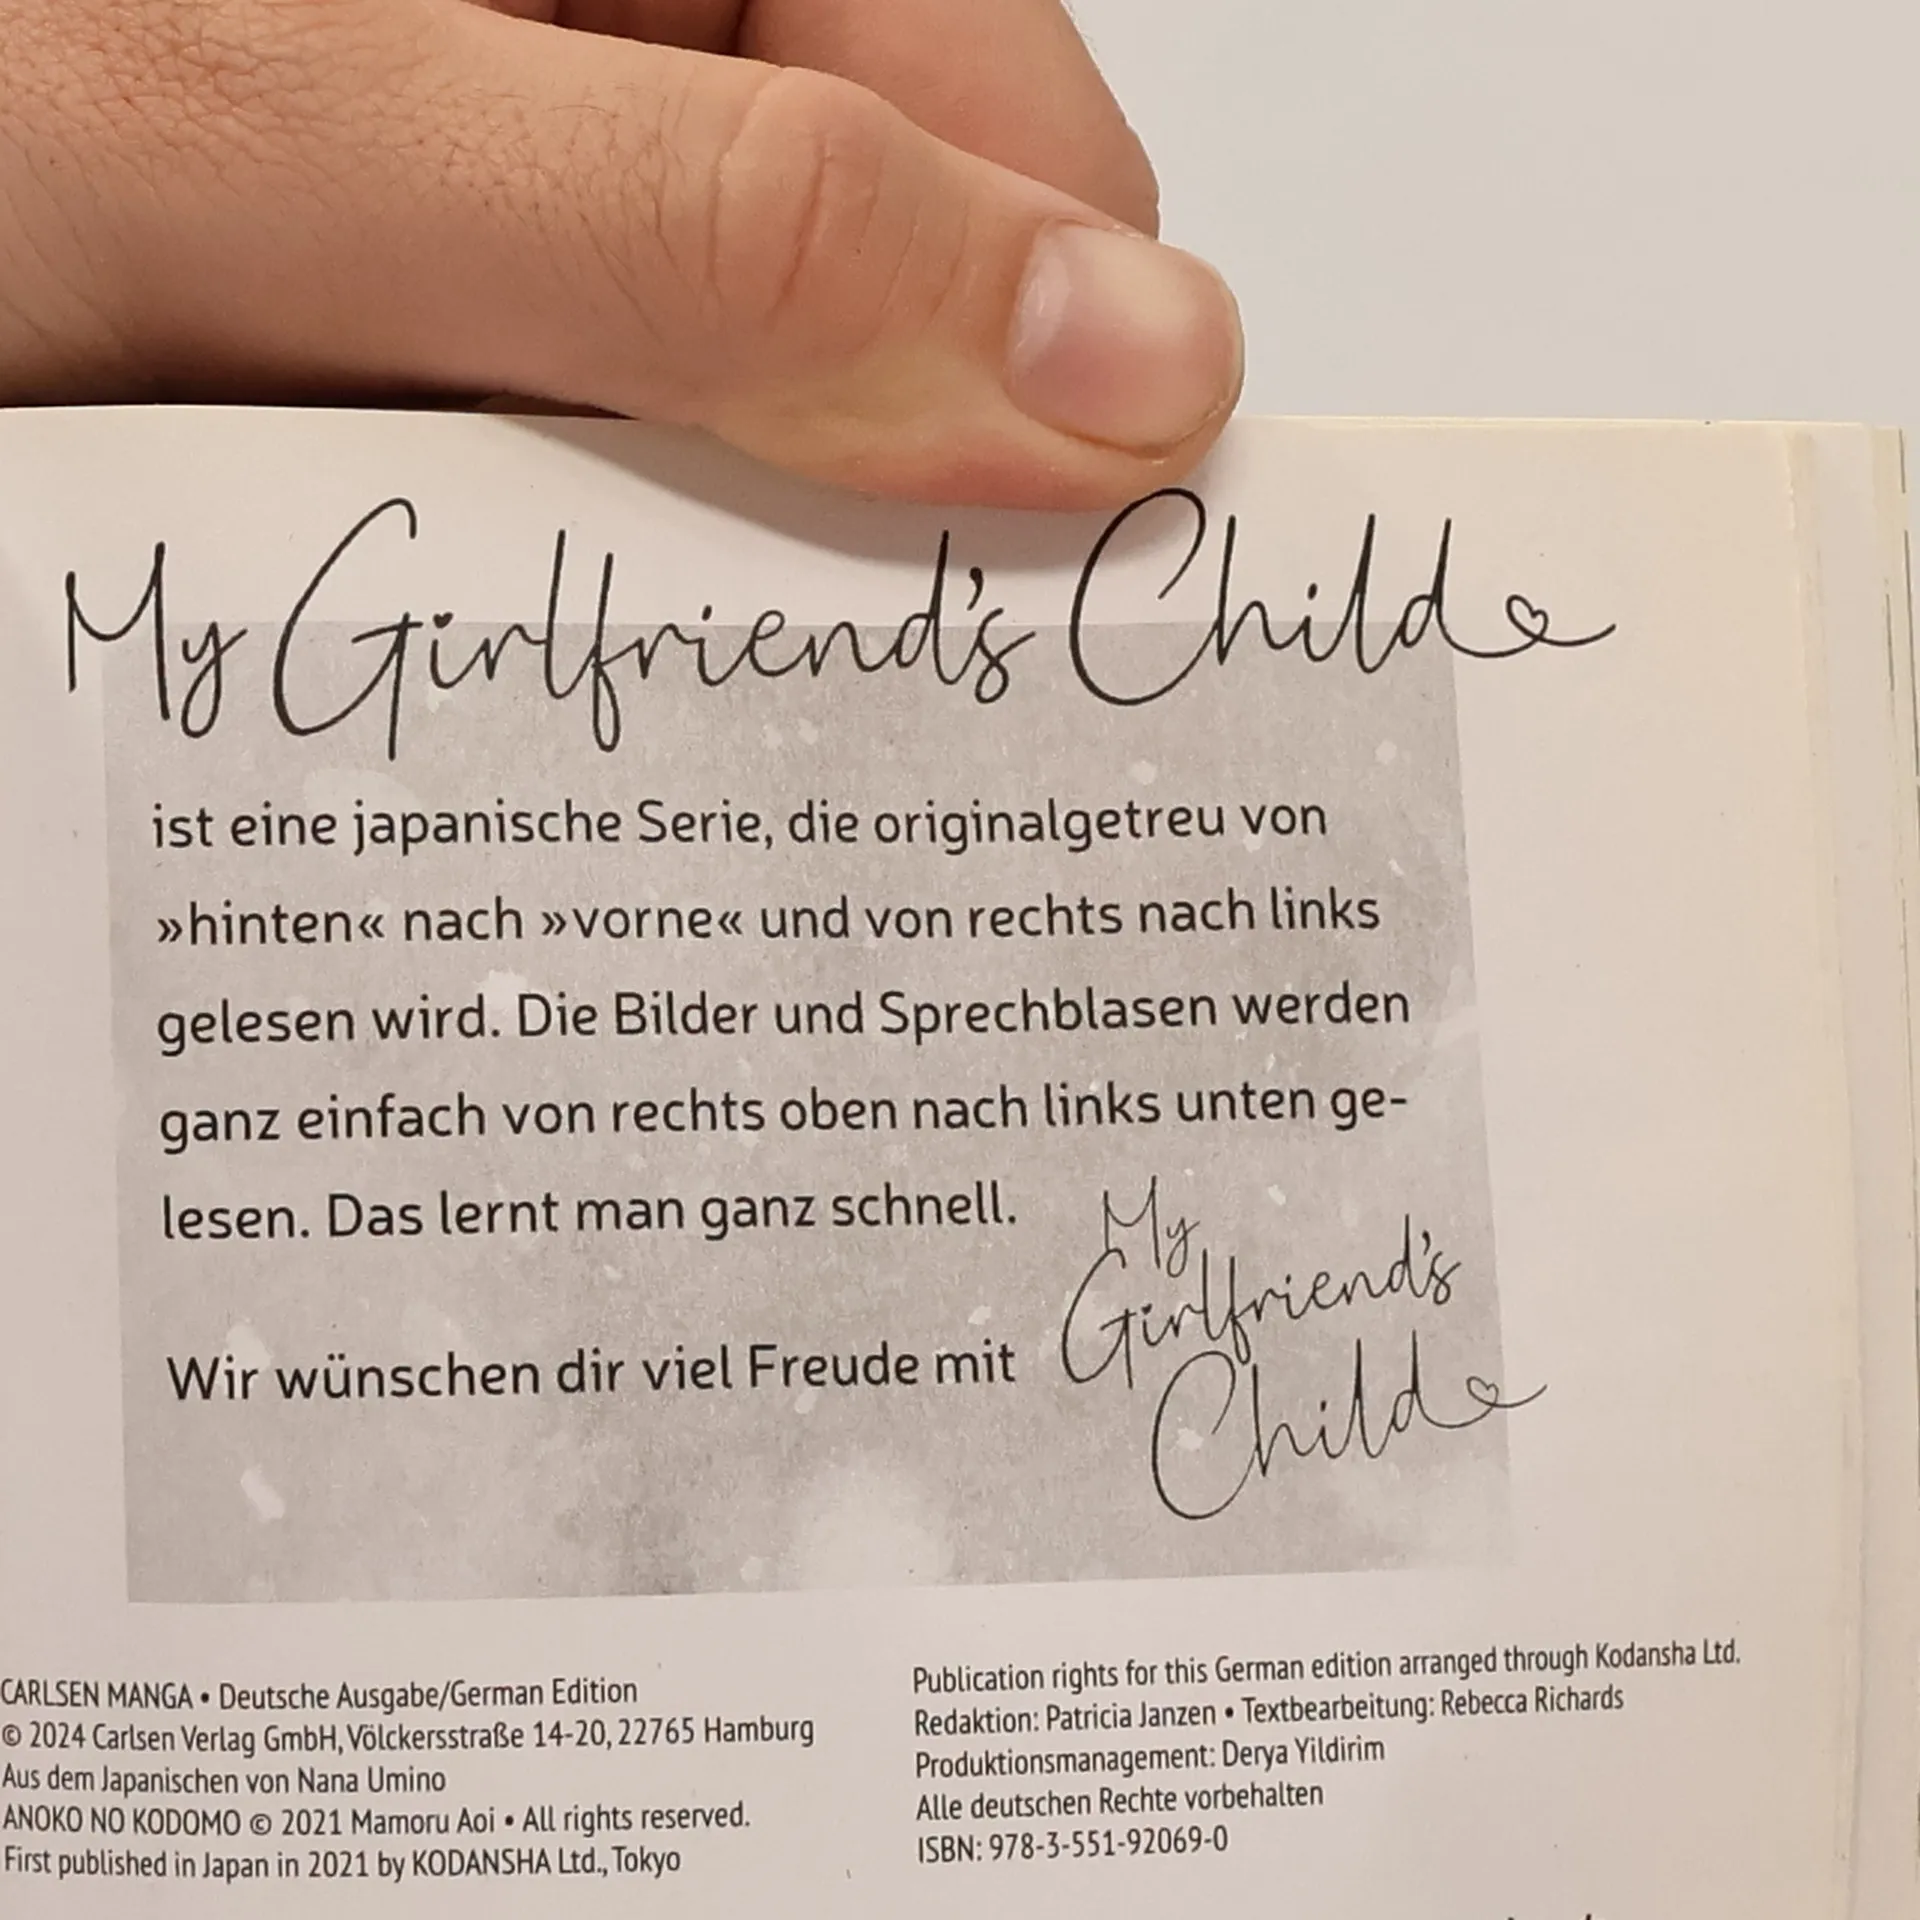 My Girlfriend's Child
ist eine japanische Serie, die originalgetreu von
»hinten« nach »vorne« und von rechts nach links
gelesen wird. Die Bilder und Sprechblasen werden
ganz einfach von rechts oben nach links unten ge-
lesen. Das lernt man ganz schnell.
Wir wünschen dir viel Freude mit
My
Girlfriend's
Child
CARLSEN MANGA • Deutsche Ausgabe/German Edition
© 2024 Carlsen Verlag GmbH, Völckersstraße 14-20, 22765 Hamburg
Aus dem Japanischen von Nana Umino
ANOKO NO KODOMO © 2021 Mamoru Aoi • All rights reserved.
First published in Japan in 2021 by KODANSHA Ltd., Tokyo
Publication rights for this German edition arranged through Kodansha Ltd.
Redaktion: Patricia Janzen • Textbearbeitung: Rebecca Richards
Produktionsmanagement: Derya Yildirim
Alle deutschen Rechte vorbehalten
ISBN: 978-3-551-92069-0